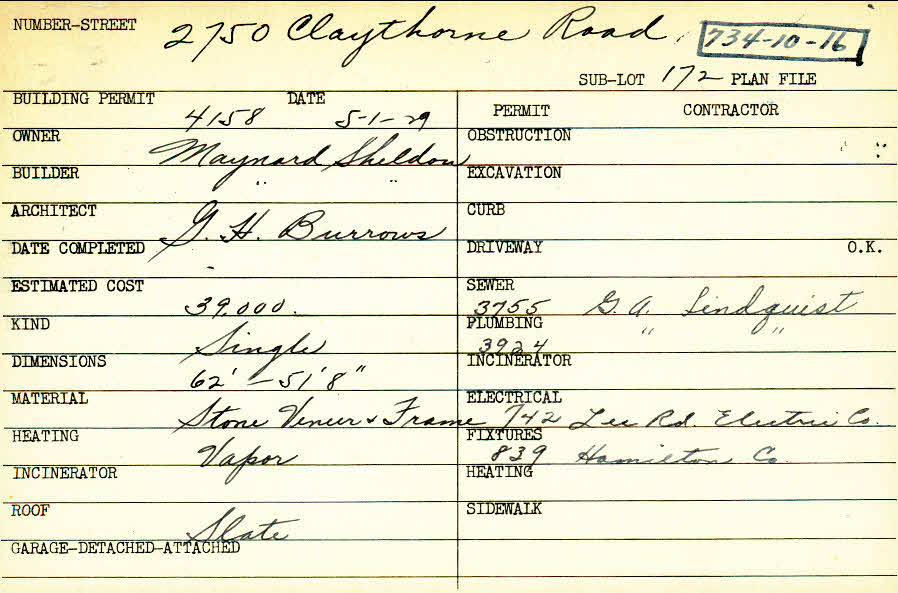 NUMBER-STREET 2750 Claythorne Road 734-10-16
SUB-LOT 172 PLAN FILE
BUILDING PERMIT 4158 DATE 5-1-29
PERMIT CONTRACTOR
OWNER Maynard Sheldon
OBSTRUCTION
BUILDER " "
EXCAVATION
ARCHITECT G. H. Burrows
CURB
DATE COMPLETED -
DRIVEWAY O.K.
ESTIMATED COST 39,000.
SEWER 3755 G. A. Lindquist
KIND Single
PLUMBING 3924 " "
DIMENSIONS 62' - 51' 8"
INCINERATOR
MATERIAL Stone Veneer & Frame
ELECTRICAL 742 Lee Rd. Electric Co.
HEATING Vapor
FIXTURES 839 Hamilton Co.
INCINERATOR
HEATING
ROOF Slate
SIDEWALK
GARAGE-DETACHED-ATTACHED